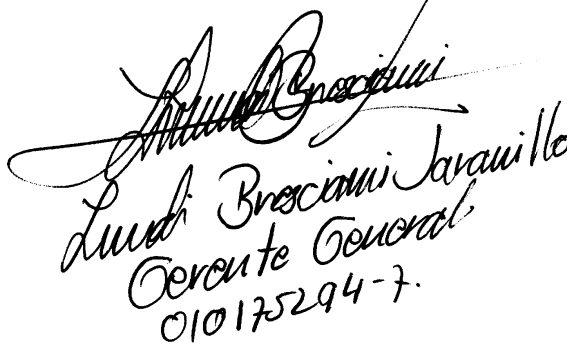 Bresciani
Lundi Bresciani Jaramillo
Gerente General
010175294-7.